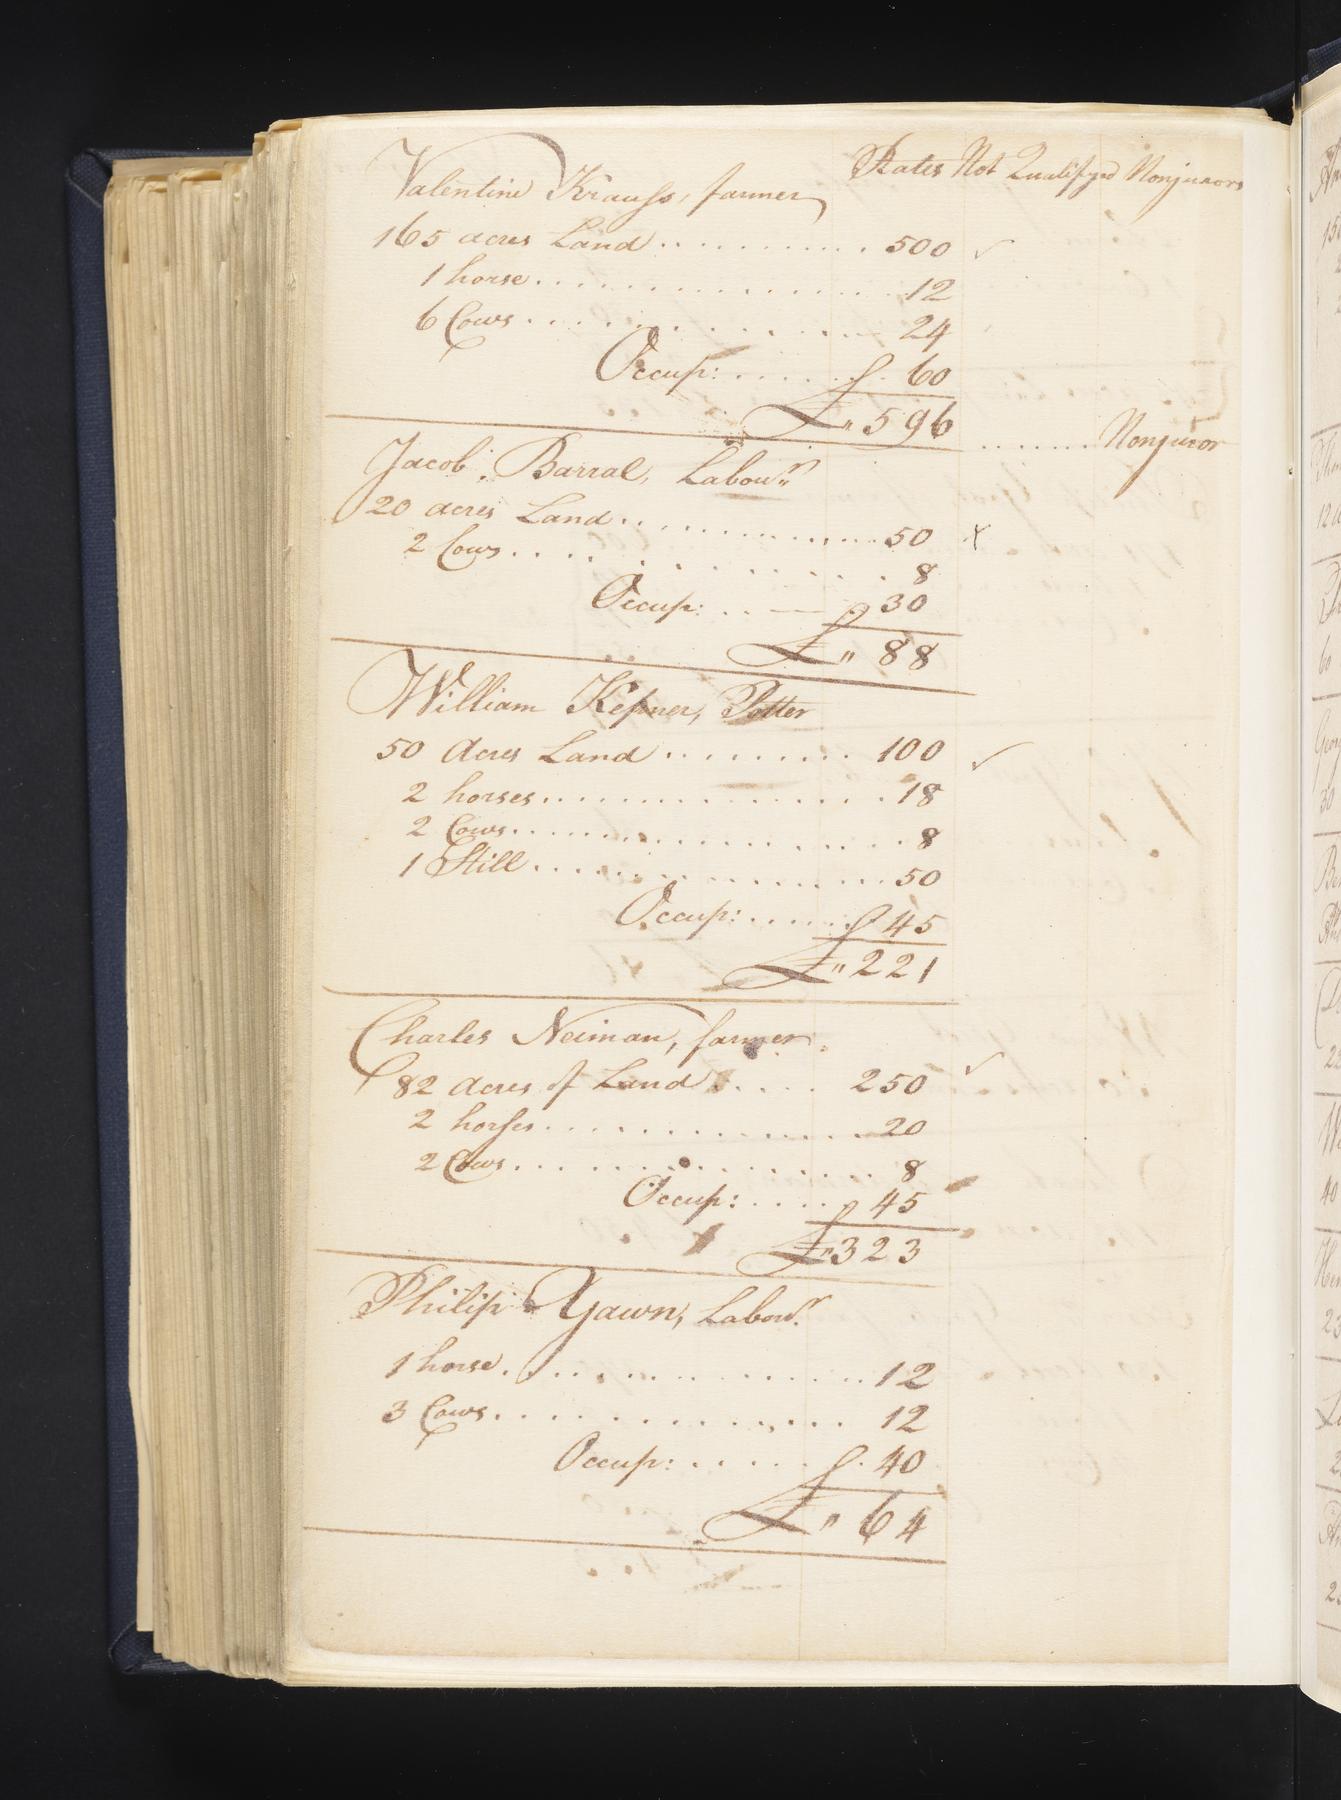 Rates Not Qualifyed Nonjurors
Valentine Krauss, farmer
165 acres Land .......... 500 ✓
1 horse .......... 12
6 Cows .......... 24
Occup: .......... 60
£ 〃 596
Jacob Barral, Labour ....... Nonjuror
20 acres Land .......... 50 x
2 Cows .......... 8
Occup: .......... 30
£ 〃 88
William Kepner, Potter
50 Acres Land .......... 100 ✓
2 horses .......... 18
2 Cows .......... 8
1 Still .......... 50
Occup: .......... 45
£ 〃 221
Charles Neiman, farmer
82 acres of Land .......... 250 ✓
2 horses .......... 20
2 Cows .......... 8
Occup: .......... 45
£ 〃 323
Philip Yawn, Labour
1 horse .......... 12
3 Cows .......... 12
Occup: .......... 40
£ 〃 64